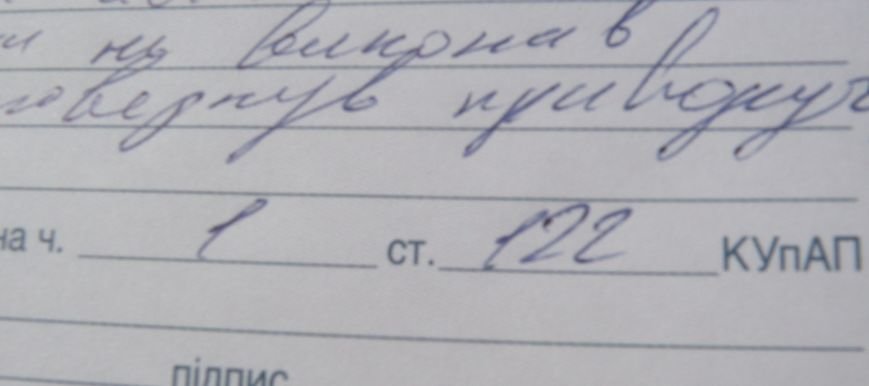 не виконав
повернув праворуч
на ч. 1 ст. 122 КУпАП
підпис